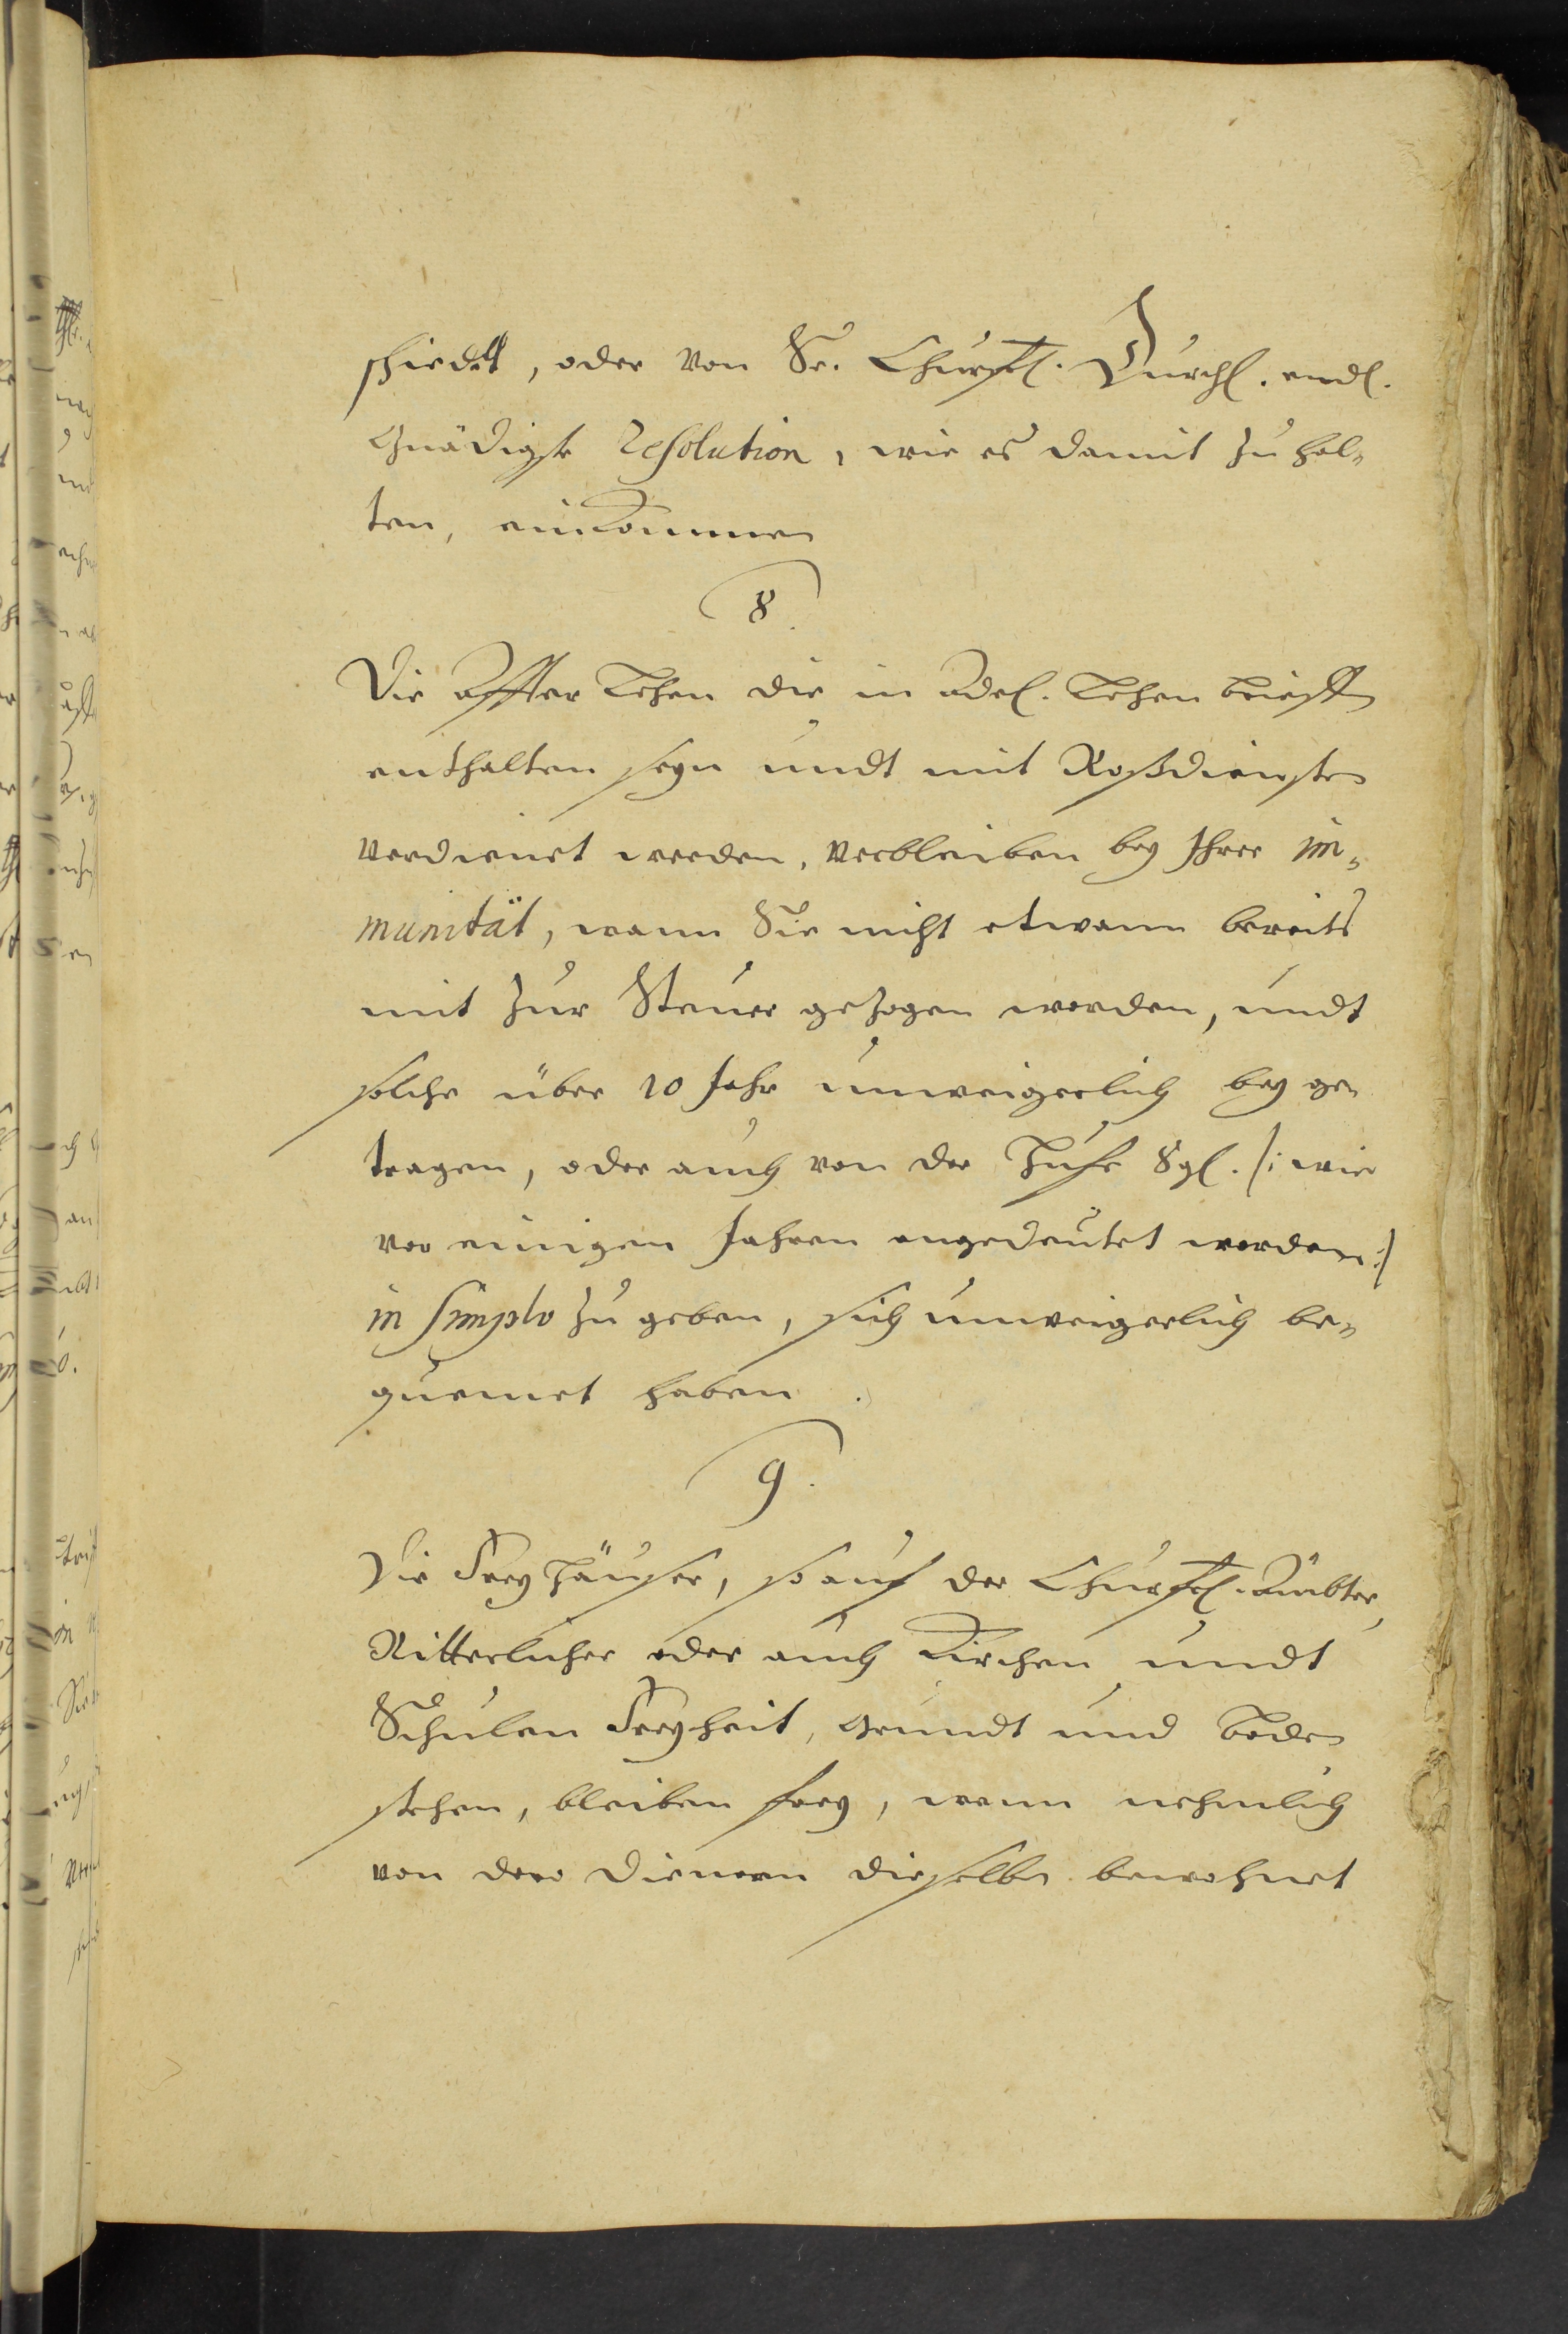 schiedet, oder von Sr. Churfl. Durchl. endl.
Gnädigste Resolution, wie es damit zu hal-
ten, einkommen
8.
Die Affter Lehen die in Adel. Lehen brieffen
enthalten seyn undt mit Roßdiensten
verdienet werden, verbleiben bey Ihrer im-
munität, wann Sie nicht etwann bereits
mit zur Steuer gezogen worden, undt
solche über 10 Jahr unweigerlich bey ge-
tragen, oder auch von der Hufe 8 gl. /: wie
vor einigen Jahren angedeutet worden :/
in simplo zu geben, sich unweigerlich be-
quemet haben.
9.
Die Frey Häuser, so auf der Churfl. Ämbter,
Ritterlicher oder auch Kirchen undt
Schulen Freyheit, Grundt und boden
stehen, bleiben frey, wenn nehmlich
von dero Dienern dieselben bewohnet